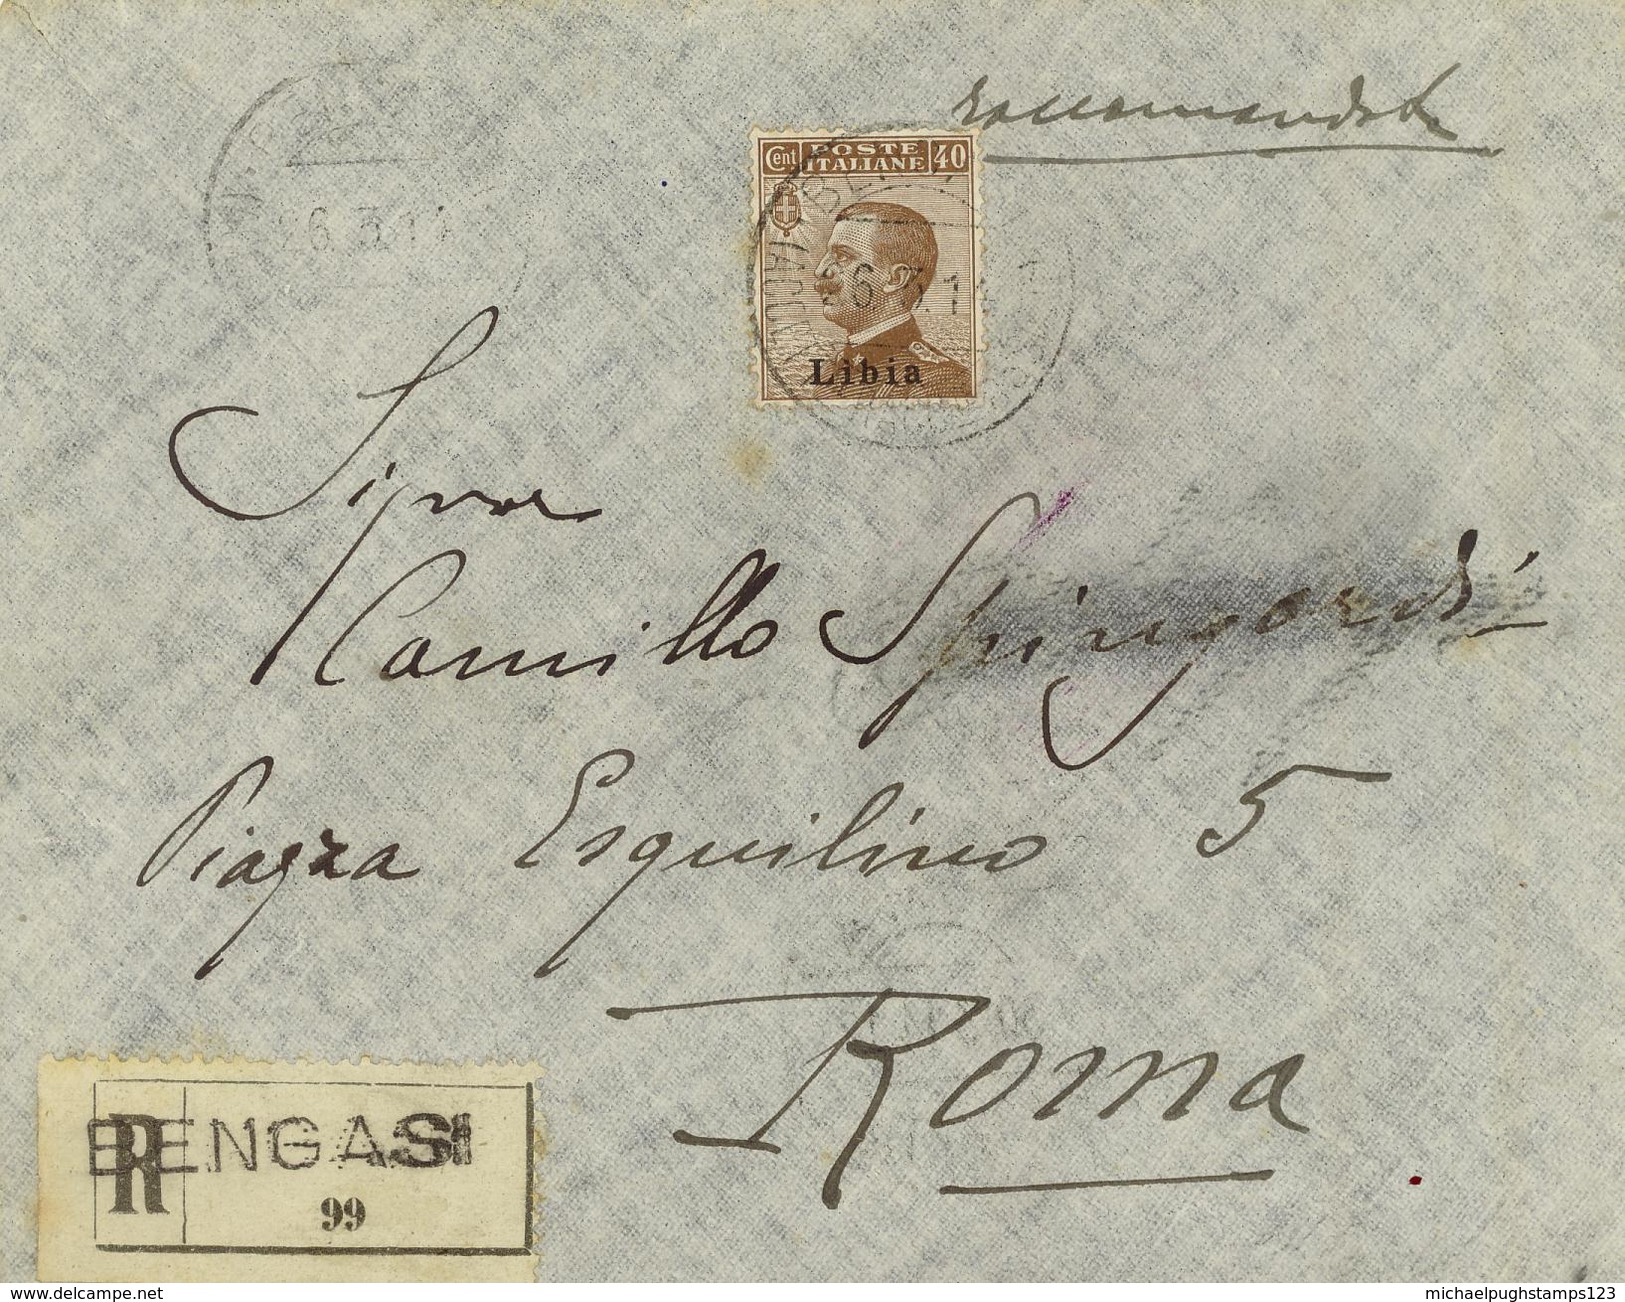 raccomandata
Cent POSTE ITALIANE 40
26.3.17
Libia
Signor
Camillo Spingardi
Piazza Esquilino 5
Roma
R BENGASI
99
delcampe.net
michaelpughstamps123